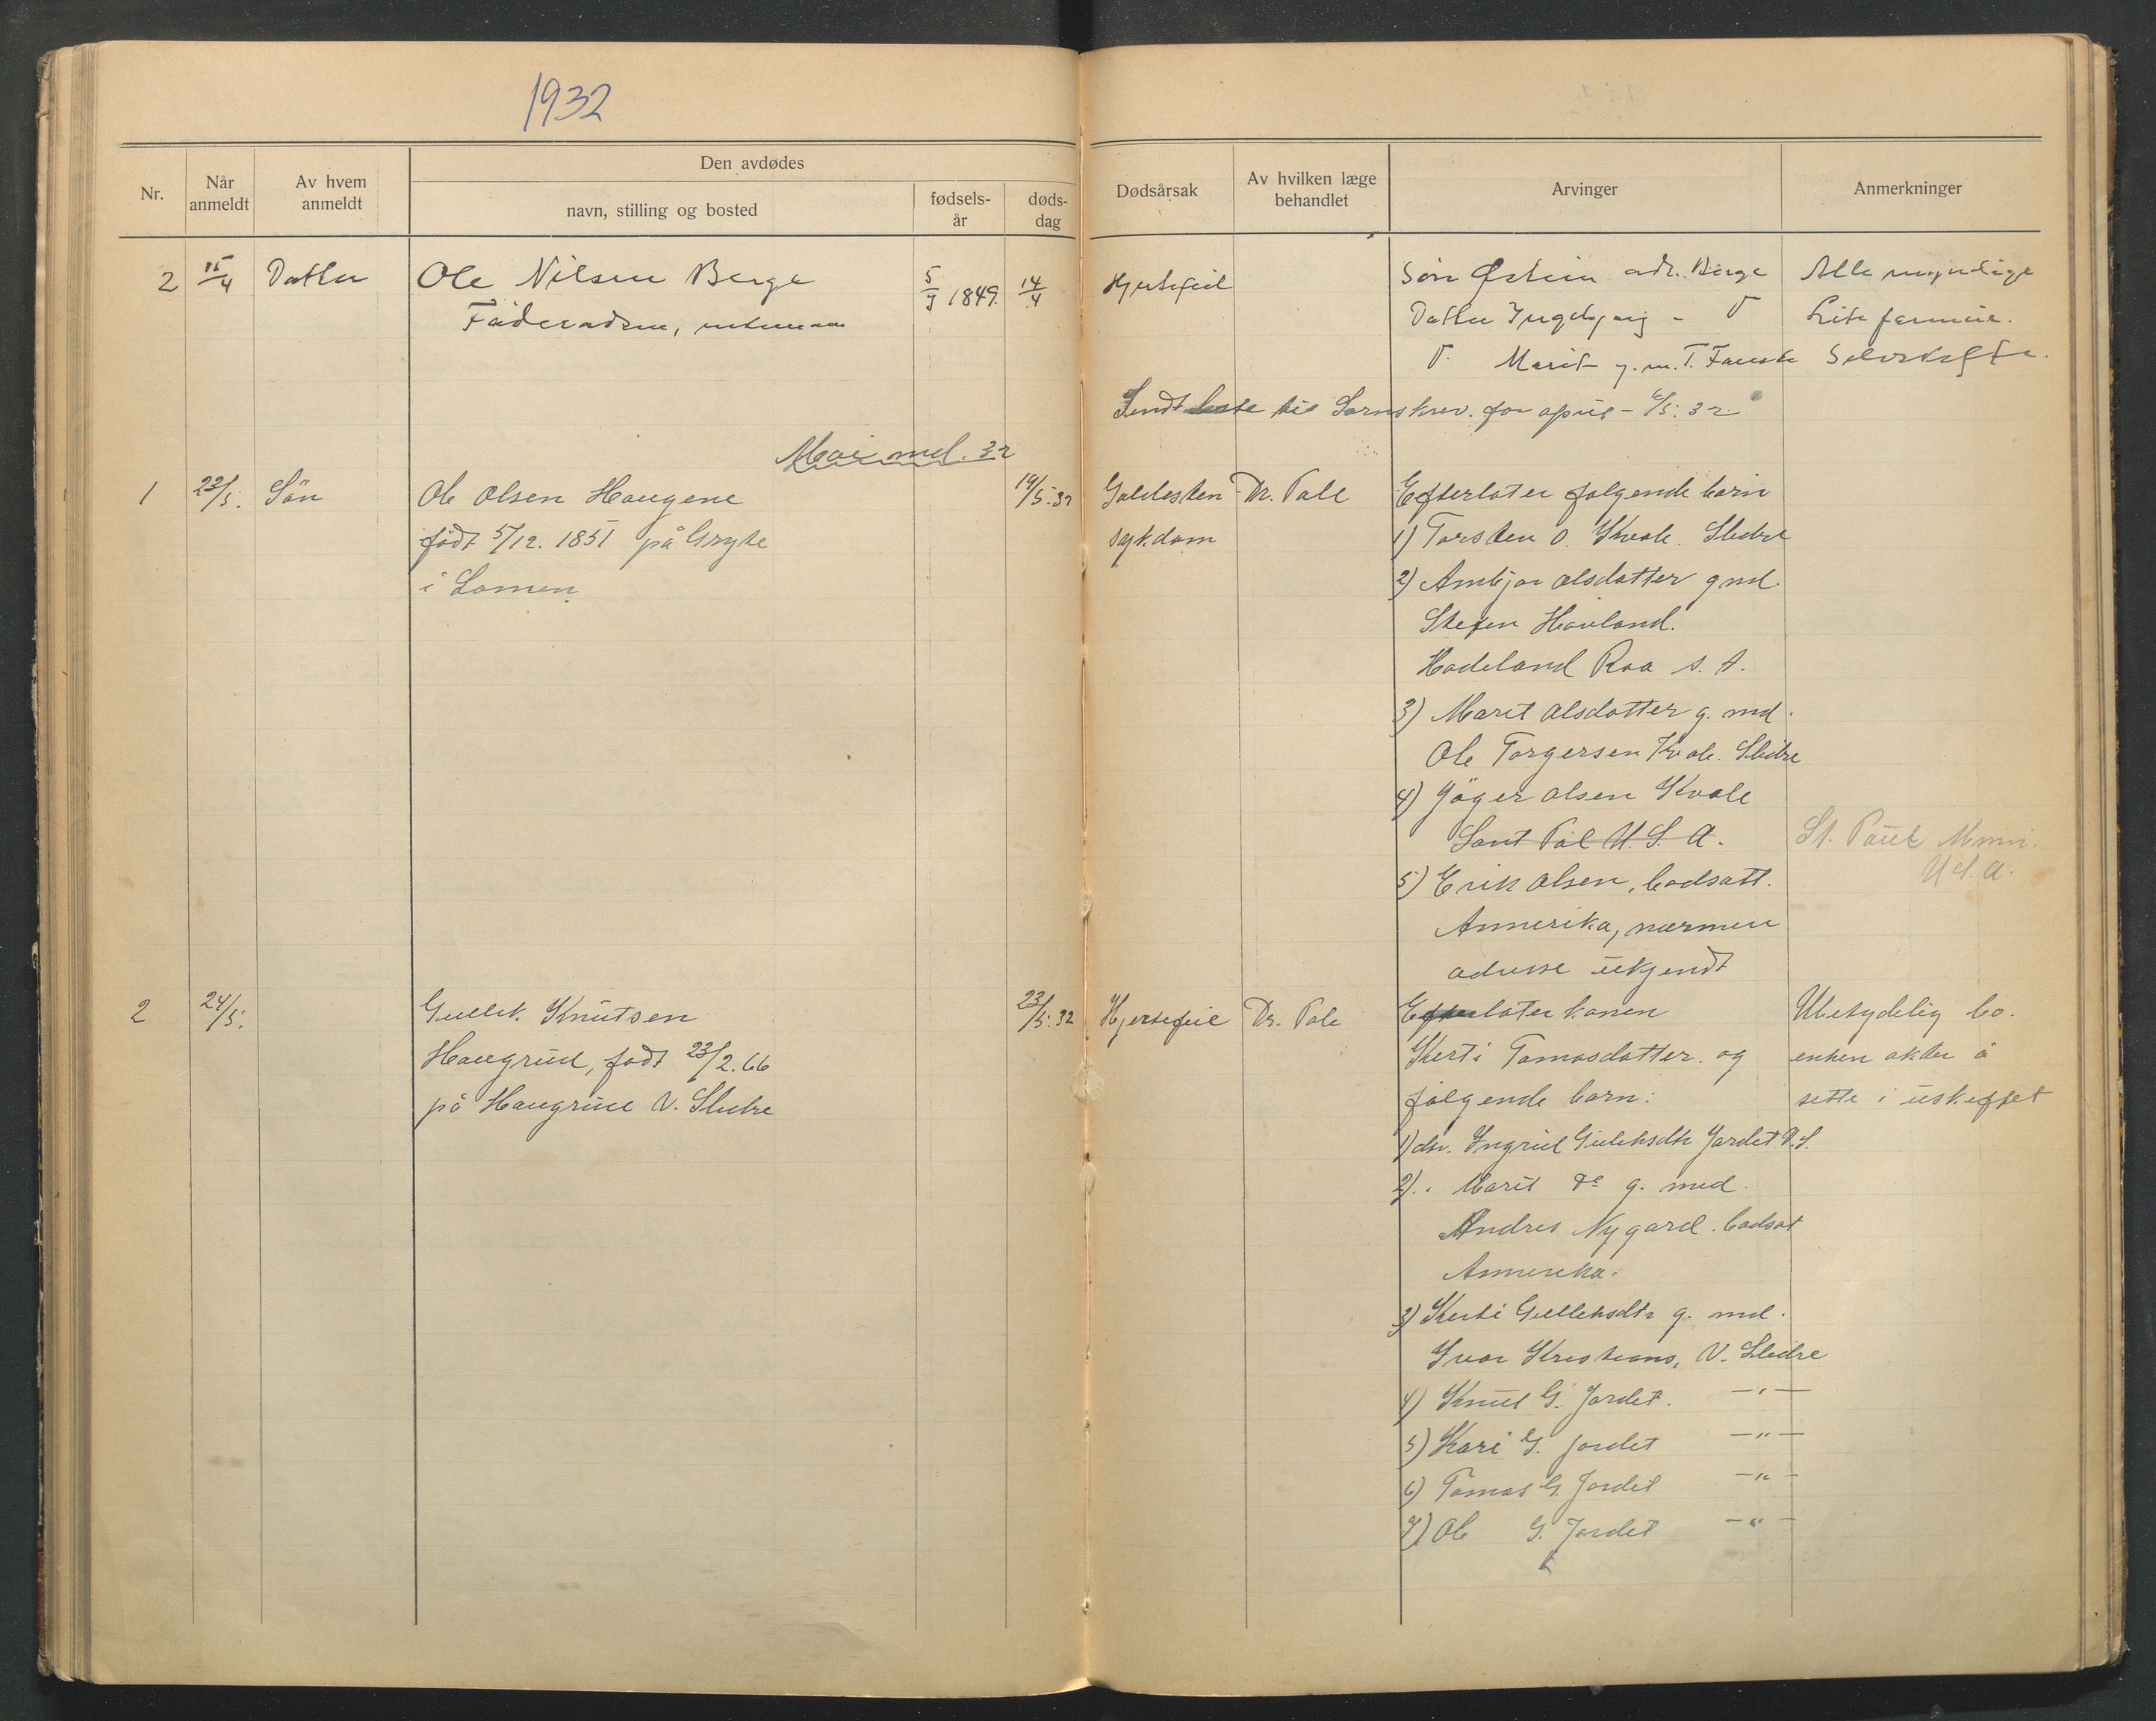 1932
Nr.
Når anmeldt
Av hvem anmeldt
Den avdødes
navn, stilling og bosted
fødsels-år
døds-dag
Dødsårsak
Av hvilken læge behandlet
Arvinger
Anmerkninger
2 15/4 Datter Ole Nilsen Berge 5/7 1849. 14/4 Hjertefeil Søn Østein adr. Berge Alle myndige
Föderådsm, Datter Ingebjørg - Do Lite formue.
Do. Marit g.m. T. Fauske Selvskifte.
Sendt liste til Sornskrev. for april - 6/5. 32
Mai md. 32
1 23/5. Sön Ole Olsen Haugene 19/5.32 Galdesten Dr. Pale Efterlater følgende barn
født 5/12. 1851 på Gryte sykdom 1) Torsten O. Kvale. Slidre
i Lomen 2) Ambjør Olsdatter g md.
Stefen Havland.
Hadeland Roa s. t.
3) Marit Olsdatter g. md.
Ole Torgersen Kvale. Slidre
4) Jöger Olsen Kvale
Sant Pål U. S. A. St. Paul Minn.
U.S.A.
5) Erik Olsen, bodsatt.
Ammerika, nærmere
adresse ukjendt
2 24/5. Gullik Knutsen 23/5.32 Hjertefeil Dr. Pale Efterlater konen Ubetydelig bo.
Haugrud, født 23/2. 66 Kerti Tomasdatter. og enken akter å
på Haugrud V. Slidre følgende barn: sitte i uskiftet
1) dtr. Ingrid Gulliksdtr Jordet V.S.
2). " Marit do g. med
Andres Nygard. bodsat
Ammerika.
3) Kerti Gulleksdtr g. md.
Ivar Kristians, V. Slidre
4) Knut G. Jordet. — " —
5) Kari G. Jordet — " —
6) Tomas G. Jordet — " —
7) Ole G. Jordet — " —